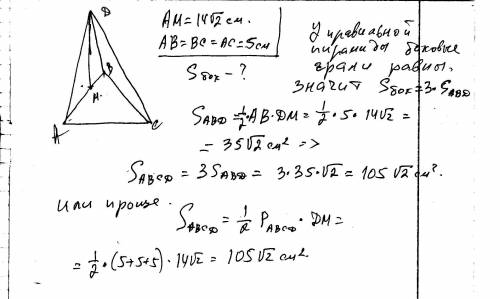 D
B
M.
A
C
AM = 14√2 см.
AB = BC = AC = 5 см
Sбок - ?
У правильной
пирамиды боковые
грани равны,
значит Sбок = 3·SABD
SABD = 1/2·AB·DM = 1/2·5·14√2 =
= 35√2 см² =>
SABCD = 3SABD = 3·35·√2 = 105√2 см².
или проще.
SABCD = 1/2 PABCD · DM =
= 1/2·(5+5+5)·14√2 = 105√2 см²